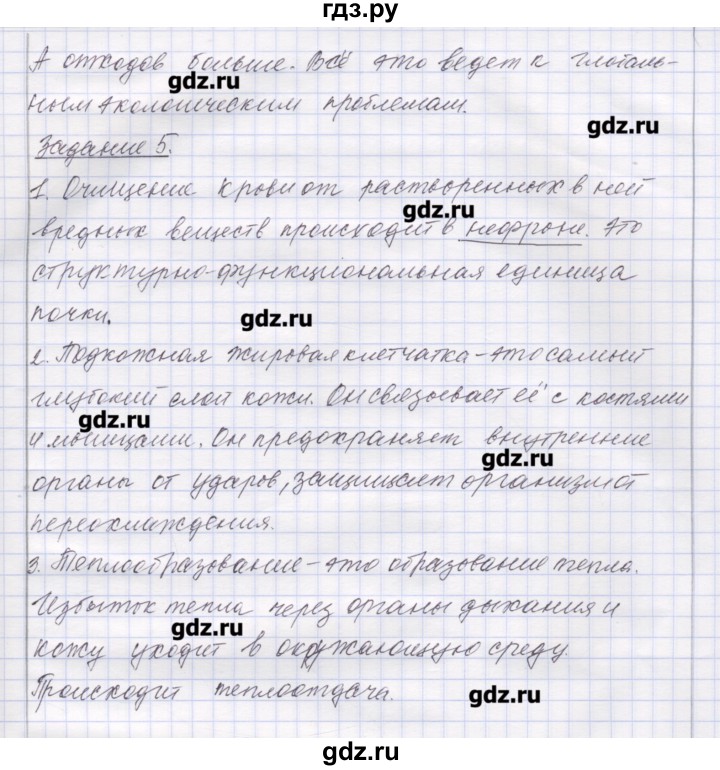 гдз.ру
А отходов больше. Всё это ведет к глобаль-
gdz.ru
ным экологическим проблемам.
gdz.ru
Задание 5.
1. Очищение крови от растворенных в ней
gdz.ru
вредных веществ происходит в нефроне. Это
структурно-функциональная единица
почки.
gdz.ru
2. Подкожная жировая клетчатка - это самый
глубокий слой кожи. Он связывает её с костями
gdz.ru
и мышцами. Он предохраняет внутренние
gdz.ru
органы от ударов, защищает организм от
переохлаждения.
3. Теплообразование - это образование тепла.
Избыток тепла через органы дыхания и
gdz.ru
кожу уходит в окружающую среду.
Происходит теплоотдача.
gdz.ru
gdz.ru